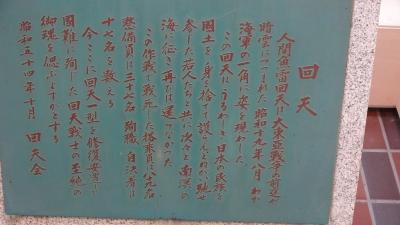 回天
人間魚雷回天は 大東亜戦争の前途が
暗雲につつまれた昭和十九年八月 わが
海軍の一角に姿を現わした
この回天は うるわしき日本の民族と
国土を身を捨てて護らんとねがい 馳せ
参じた若人たちと共に次々と南溟の
海に征き再び還らなかった
この作戦で戦死した搭乗員は八十九名
整備員は三十八名 殉職 自決者は
十七名を数える
今ここに回天一型を修復安置し
国難に殉じた回天戦士の至純の
御魂を偲ぶよすがとする
昭和五十四年十月 回天会